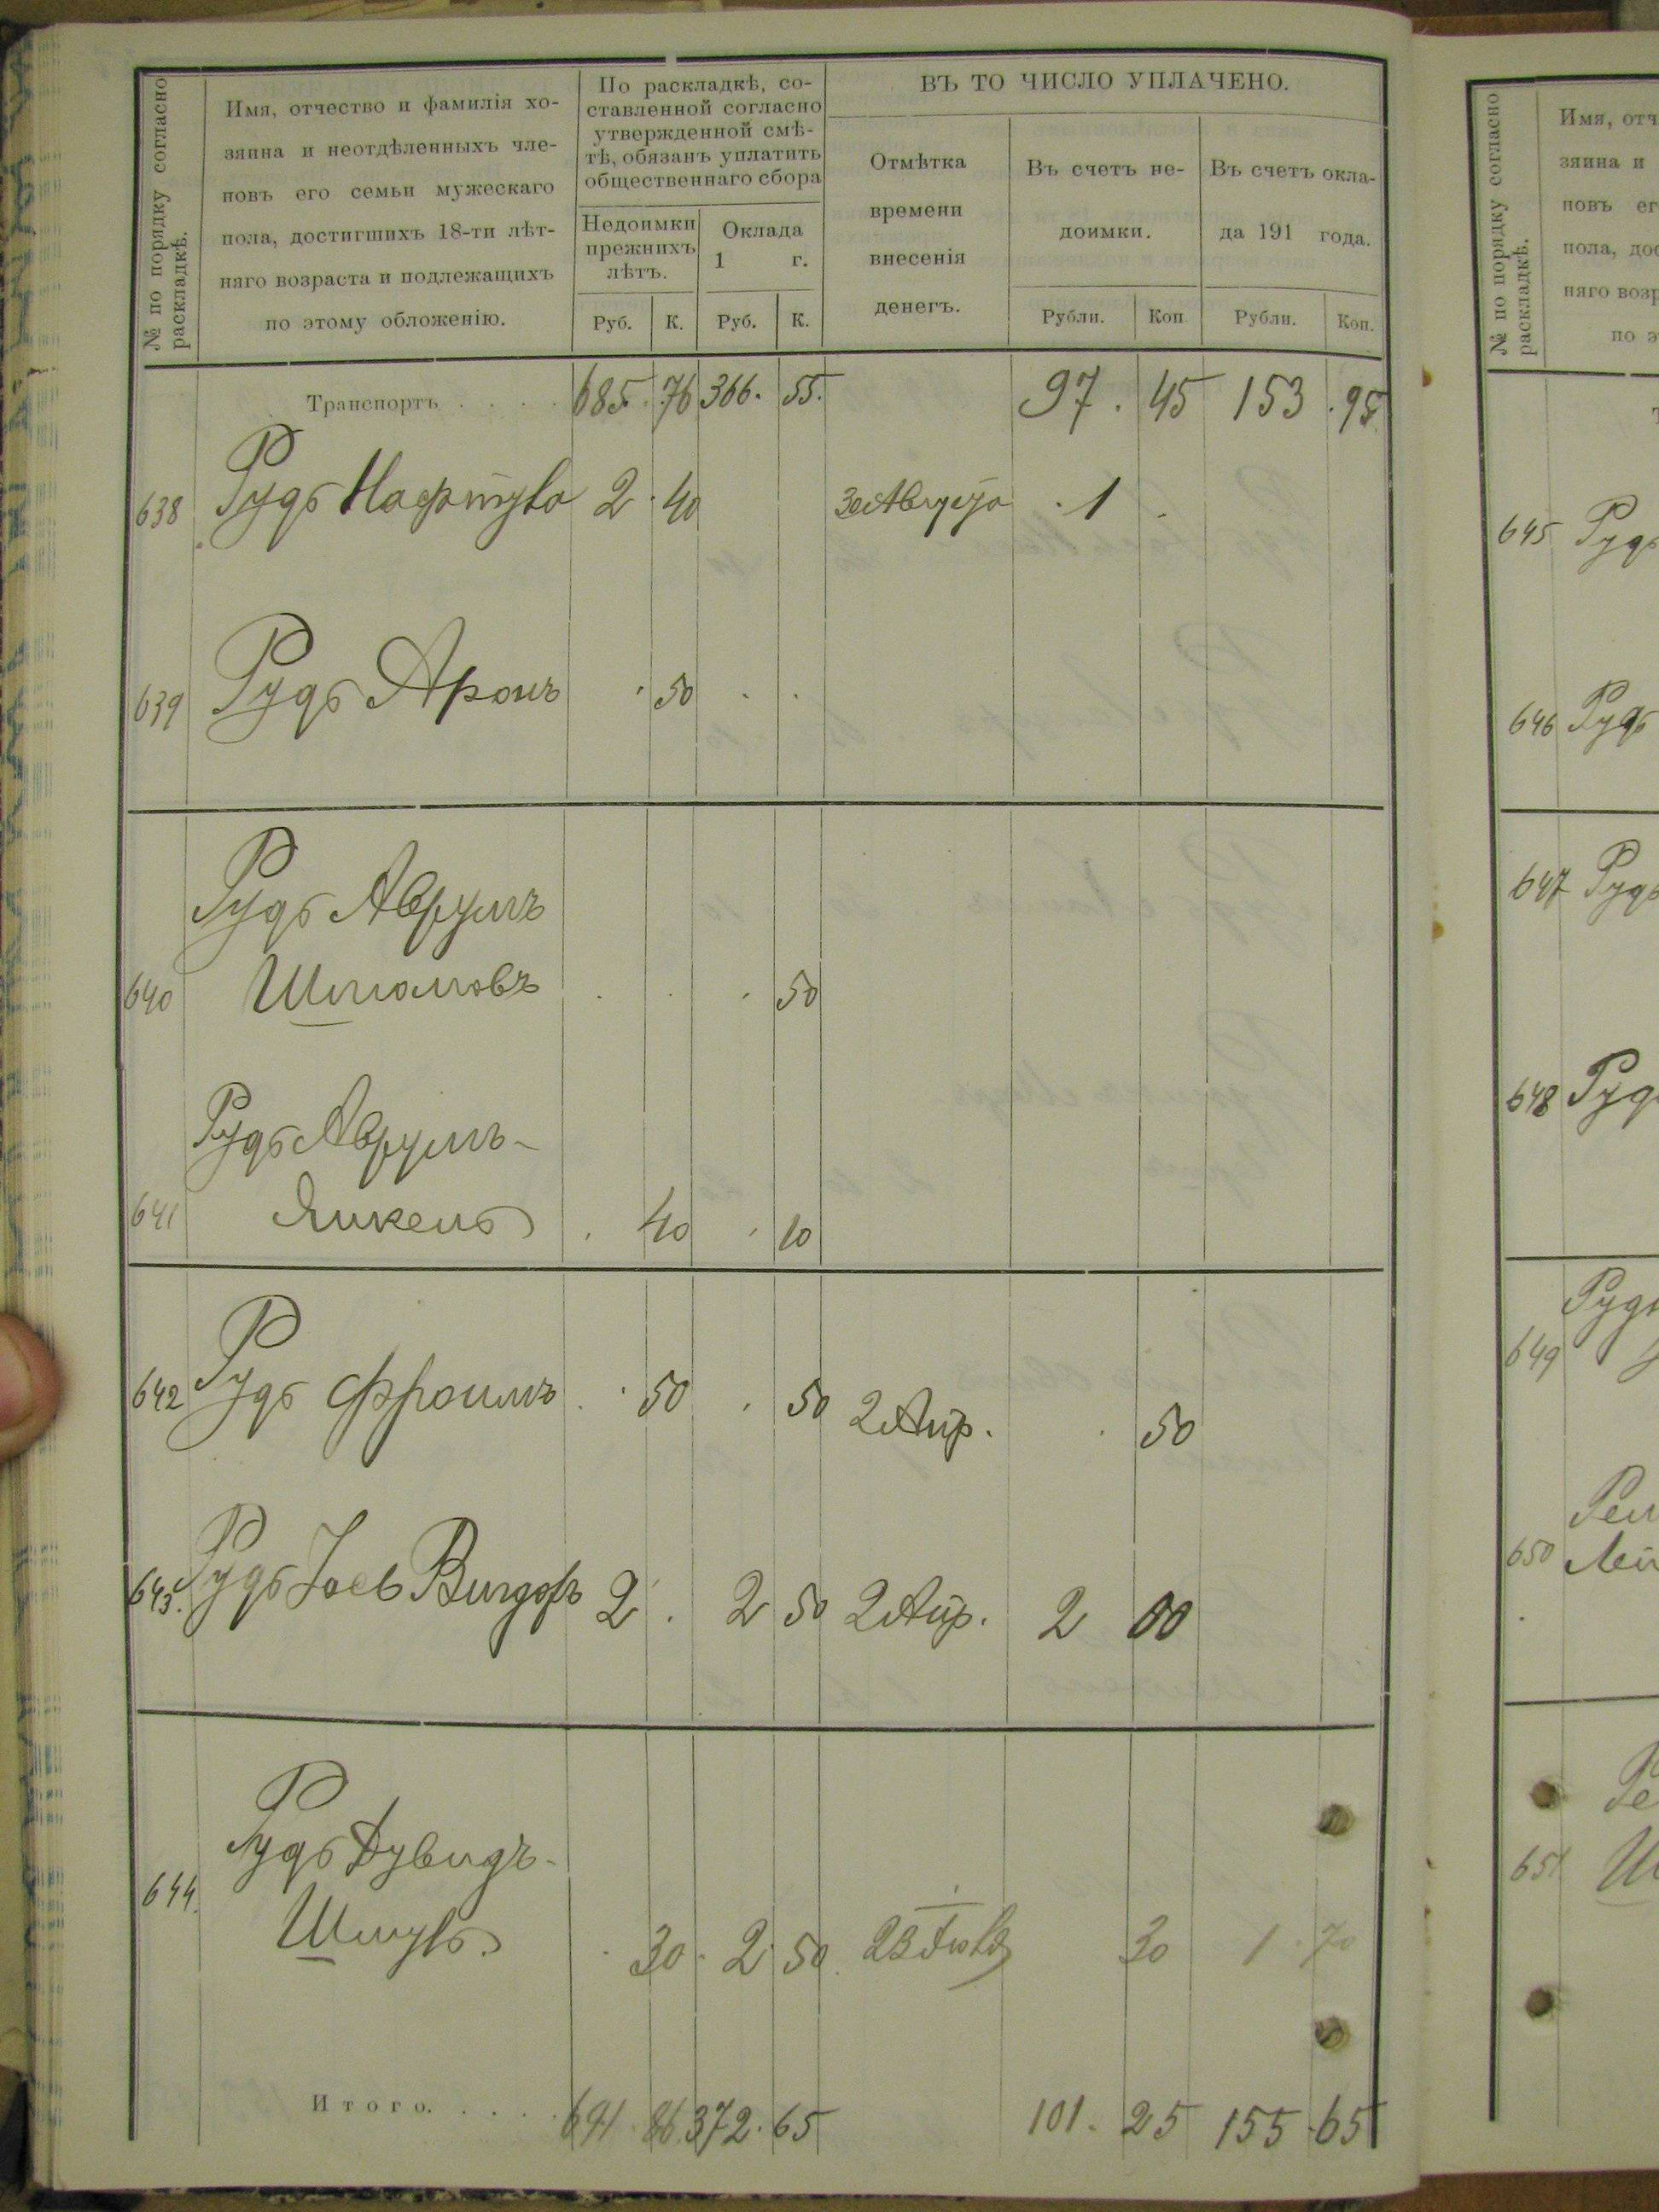 № по порядку согласно
раскладкѣ.
Имя, отчество и фамилія хо-
зяина и неотдѣленныхъ чле-
новъ его семьи мужескаго
пола, достигшихъ 18-ти лѣт-
няго возраста и подлежащихъ
по этому обложенію.
По раскладкѣ, со-
ставленной согласно
утвержденной смѣ-
тѣ, обязанъ уплатить
общественнаго сбора
Недоимки
прежнихъ
лѣтъ.
Оклада
1 г.
Руб. К. Руб. К.
ВЪ ТО ЧИСЛО УПЛАЧЕНО.
Отмѣтка
времени
внесенія
денегъ.
Въ счетъ не-
доимки.
Рубли. Коп
Въ счетъ окла-
да 191 года.
Рубли. Коп.
Транспортъ . . . . 685. 76 366. 55. 97. 45 153. 95
638 Рудь Нафтула 2 40 30 Августа 1
639 Рудь Аронъ 50
Рудь Аврумъ
640 Шлиомовъ 50
Рудь Аврумъ-
641 Янкель 40 10
642 Рудь Фроимъ 50 50 2 Апр. 50
643. Рудь Іось Вигдоръ 2 2 50 2 Апр. 2 00
Рудь Дувидъ-
644. Шмуль 30 2 50 23 30 1 70
Итого. . . . . 691. 86 372. 65 101. 25 155. 65
№ по порядку согласно
раскладкѣ.
Имя, отч
зяина и
новъ ег
пола, дос
няго возр
по э
645 Рудь
646 Рудь
647 Рудь
648 Рудь
Рудь
649
650
651